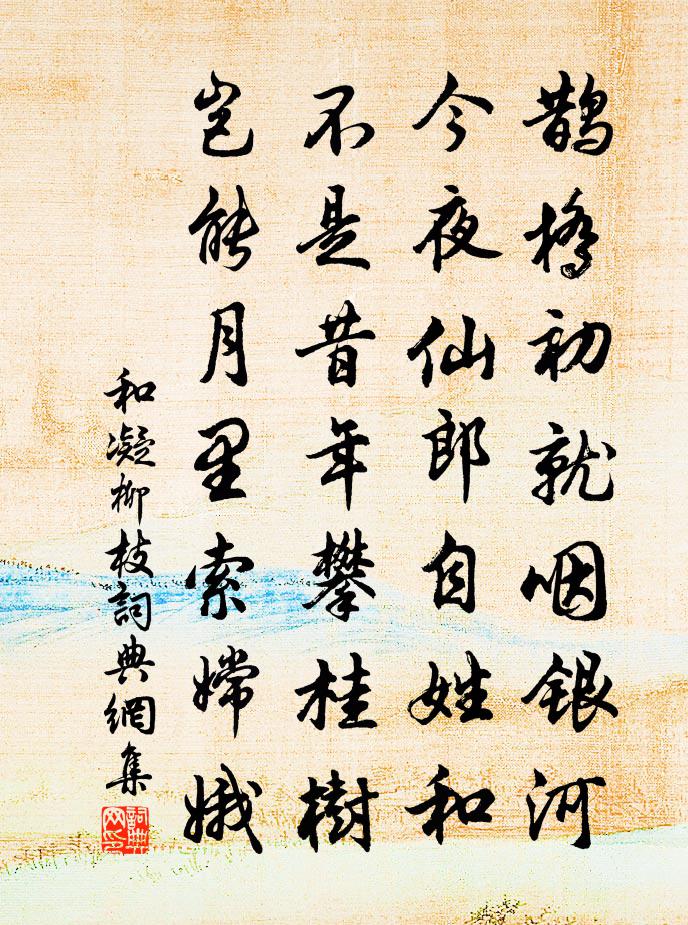 鹊橋初就咽银河
今夜仙郎自姓和
不是昔年攀桂樹
岂能月里索嫦娥
和凝柳枝詞典網集
詞典网印